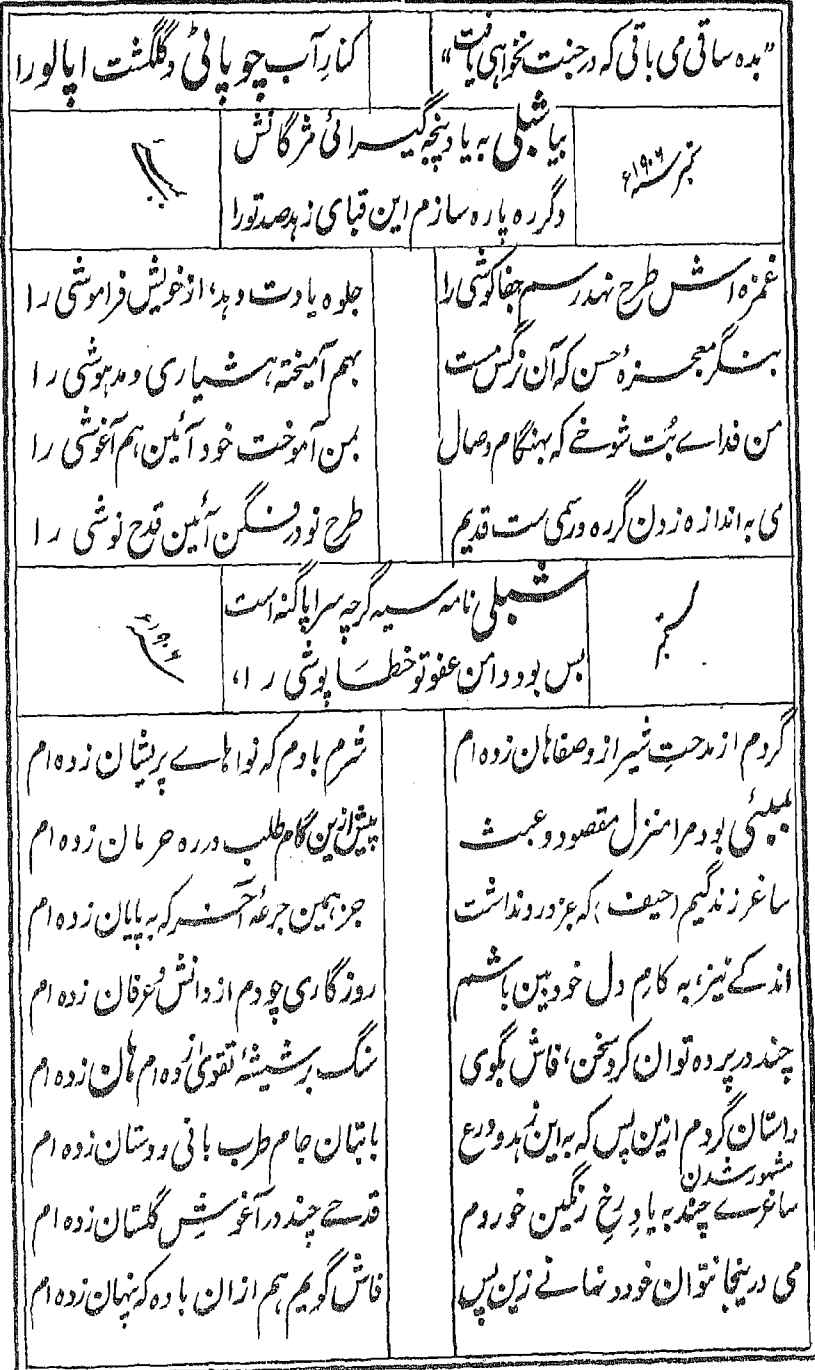 "بده ساقی می باقی که در جنت نخواهی یافت" کنارِ آب چوپاٹی و گلگشت اپالو را
بیا شبلی به یاد پنجه گیرائی مژگانش
ستمبر سنه ۱۹۰۶ء
دگر ره پاره سازم این قبای زهد صد تو را
غمزه اش طرح نهد رسم جفا کوشی را جلوه یادت دهد، از خویش فراموشی را
بنگر معجزهٔ حسن که آن نرگس مست بهم آمیخته، هشیاری و مدهوشی را
من فداے بُت شوخے که بهنگام وصال بمن آموخت خود آئین هم آغوشی را
می به اندازه زدن گرره و رسمی ست قدیم طرح نو در فگن آئین قدح نوشی را
شبلی نامه سیه گرچه سراپا گنه است
ستمبر سنه ۱۹۰۶ء
بس بود دامن عفو تو خطا پوشی را،
گر دم از مدحتِ شیراز و صفاهان زده ام شرم بادم که نوا هاے پریشان زده ام
بمبئی بود مرا منزل مقصود و عبث پیش ازین گام طلب در ره حرمان زده ام
ساغر زندگیم (حیف) که جز دُرد نداشت جز همین جرعهٔ آخر که به پایان زده ام
اندکے نیز، به کامِ دل خود بین باشم روزگاری چو دم از دانش و عرفان زده ام
چند در پرده توان کرد سخن، فاش بگوی سنگ بر شیشهٔ تقویٰ زده ام هان زده ام
داستان گردم ازین پس که به این زهد و ورع با بتان جام طرب
مشهور شدن
ساغرے چند به یادِ رخِ رنگین خوردم قدحے چند در آغوشِ گلستان زده ام
می درینجا نتوان خورد نهانے زین پس فاش گویم هم ازان باده که پنهان زده ام